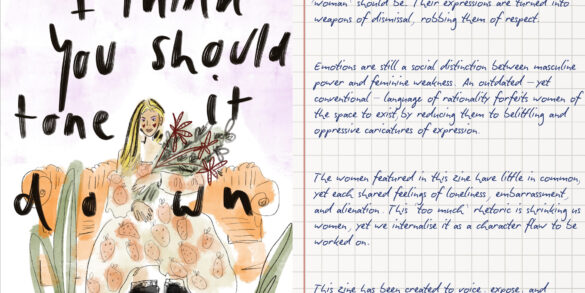 I think
you should
tone it
down
'woman' should be. Their expressions are turned into
weapons of dismissal, robbing them of respect.
Emotions are still a social distinction between masculine
power and feminine weakness. An outdated - yet
conventional - language of rationality forfeits women of
the space to exist by reducing them to belittling and
oppressive caricatures of expression.
The women featured in this zine have little in common,
yet each shared feelings of loneliness, embarrassment,
and alienation. This 'too much' rhetoric is shrinking us
women, yet we internalise it as a character flaw to be
worked on.
This zine has been created to voice, expose, and